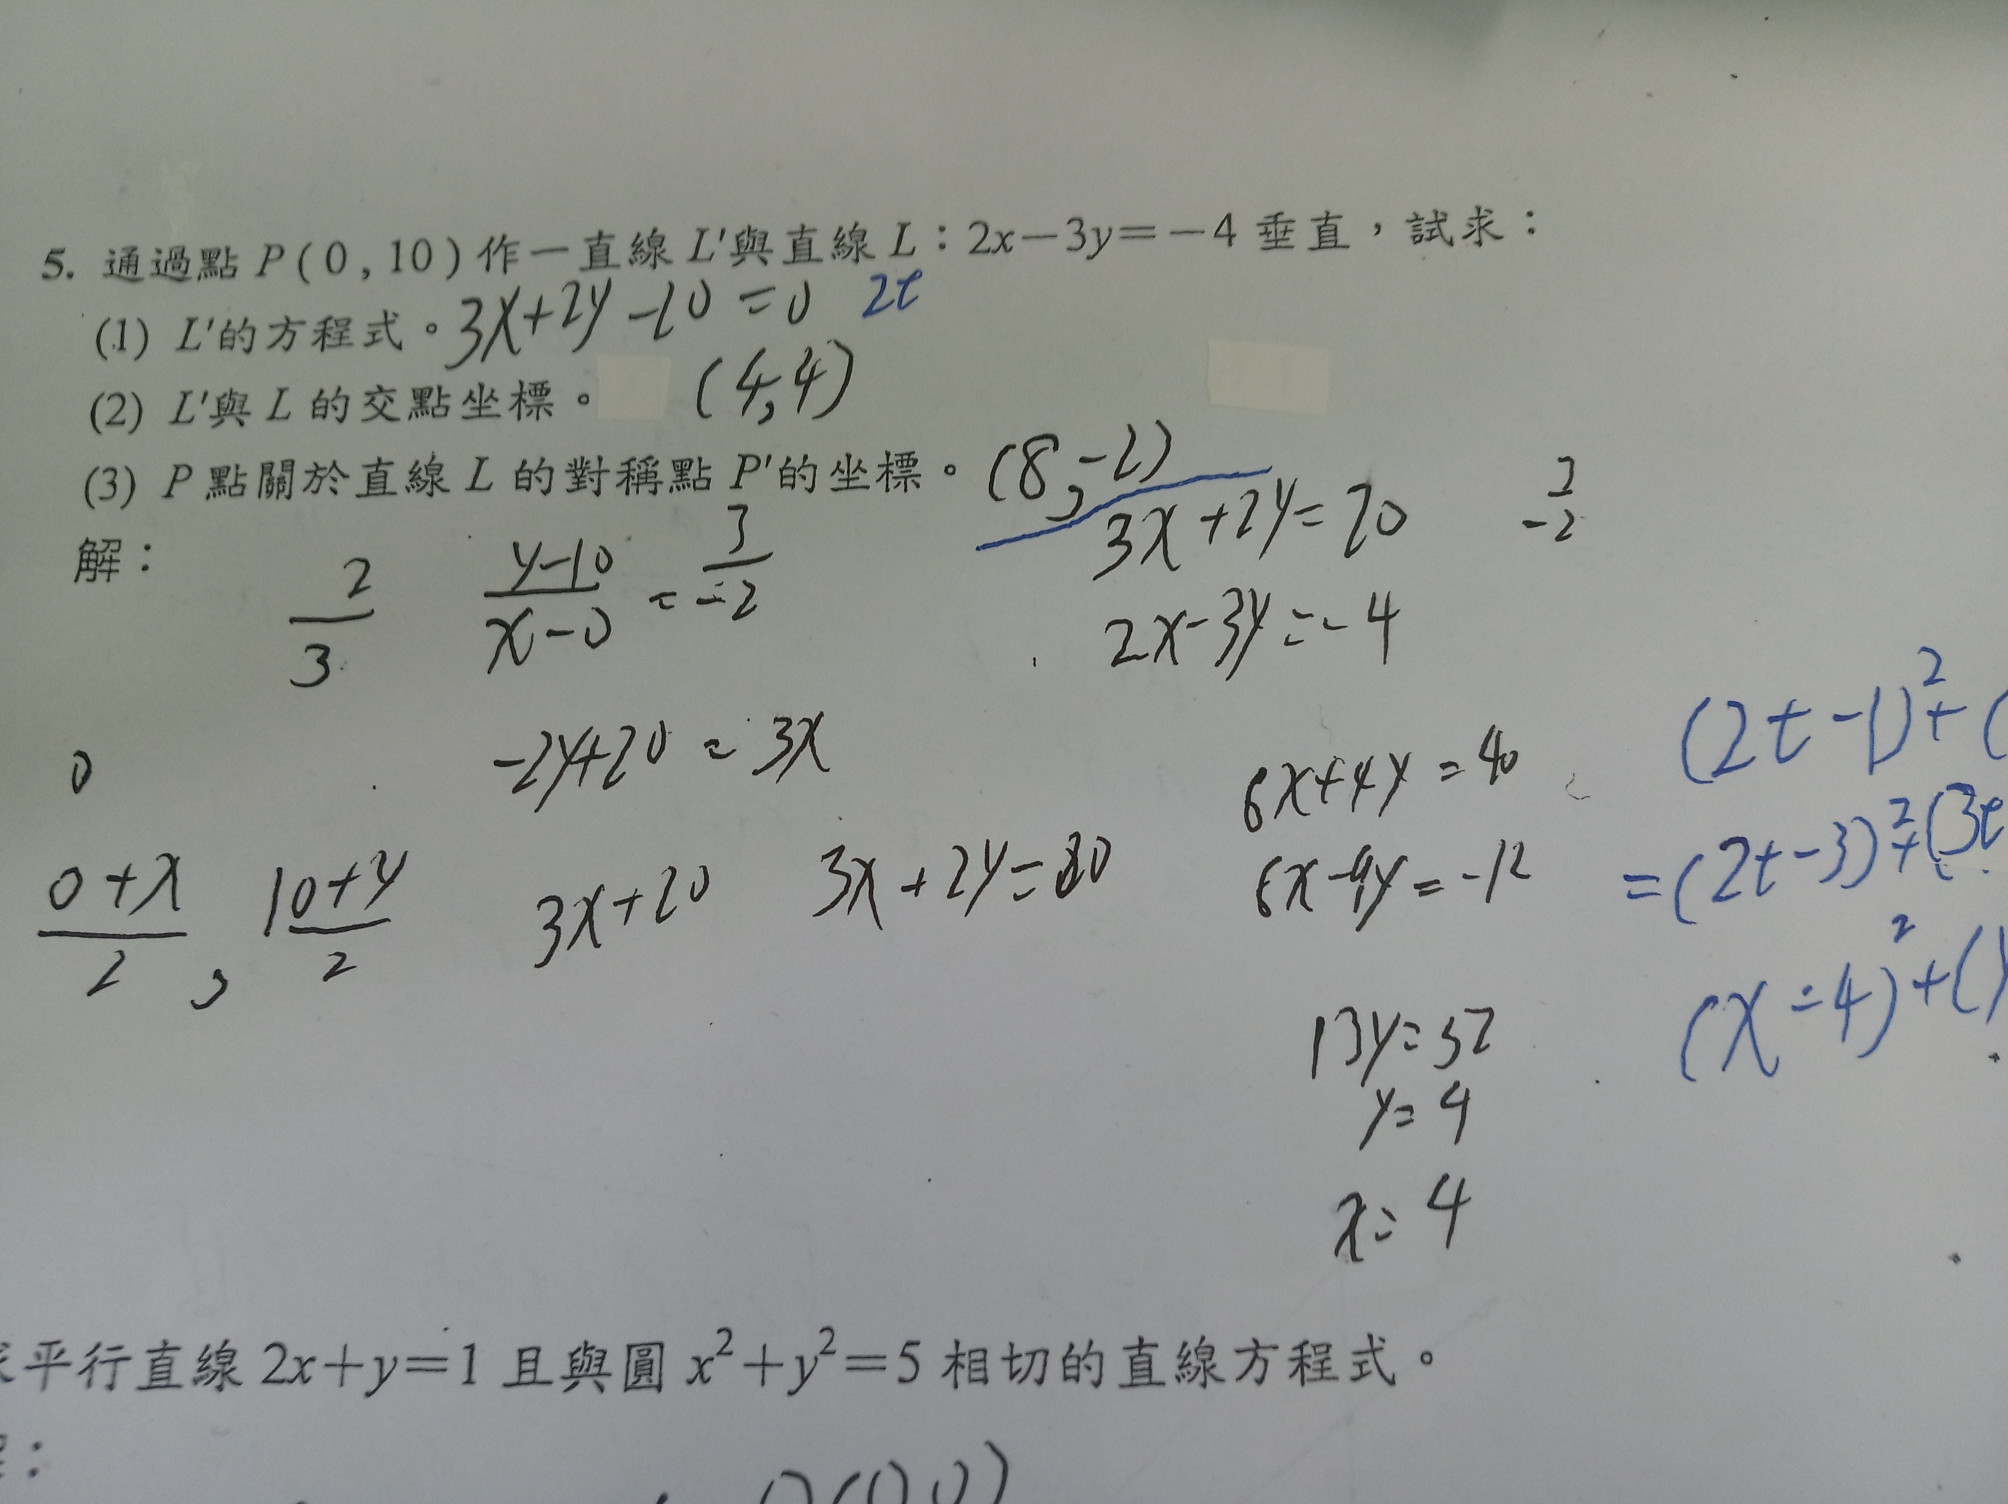 5. 通過點 P(0,10)作一直線 L'與直線 L：2x－3y＝－4 垂直，試求：
(1) L'的方程式。3x+2y-20=0 2t
(2) L'與 L 的交點坐標。 (4,4)
(3) P 點關於直線 L 的對稱點 P'的坐標。(8,-2)
解：
2/3 (y-10)/(x-0) = 3/-2 3x+2y=20 3/-2
2x-3y=-4
-2y+20=3x 6x+4y=40 (2t-1)²+(
0
(0+x)/2 , (10+y)/2 3x+20 3x+2y=20 6x-9y=-12 =(2t-3)²+(3t
13y=52 (x-4)²+(y
y=4
x=4
平行直線 2x+y=1 且與圓 x²+y²=5 相切的直線方程式。
：
(0,0)